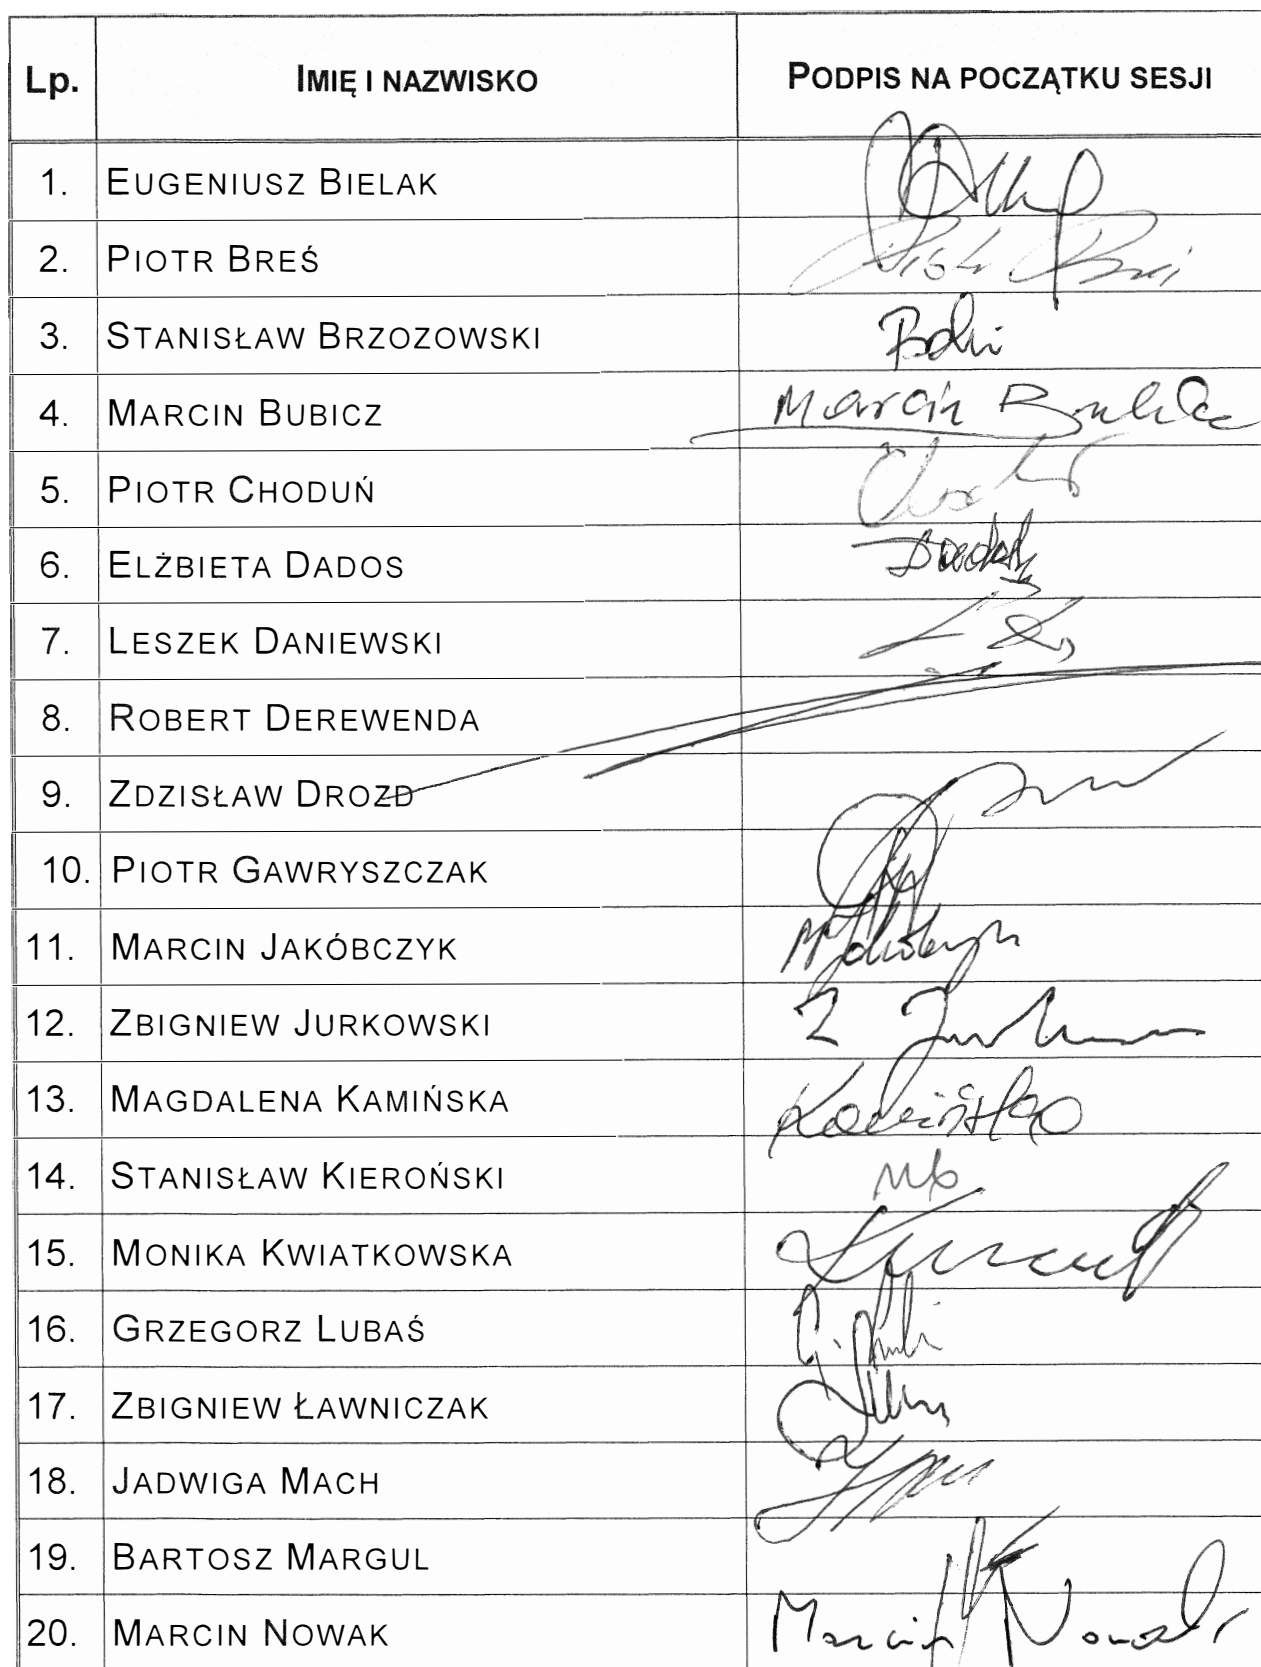 Lp. IMIĘ I NAZWISKO PODPIS NA POCZĄTKU SESJI
1. EUGENIUSZ BIELAK
2. PIOTR BREŚ Piotr Breś
3. STANISŁAW BRZOZOWSKI
4. MARCIN BUBICZ Marcin
5. PIOTR CHODUŃ
6. ELŻBIETA DADOS
7. LESZEK DANIEWSKI
8. ROBERT DEREWENDA
9. ZDZISŁAW DROZD
10. PIOTR GAWRYSZCZAK
11. MARCIN JAKÓBCZYK
12. ZBIGNIEW JURKOWSKI
13. MAGDALENA KAMIŃSKA Kamińska
14. STANISŁAW KIEROŃSKI nb
15. MONIKA KWIATKOWSKA
16. GRZEGORZ LUBAŚ
17. ZBIGNIEW ŁAWNICZAK
18. JADWIGA MACH
19. BARTOSZ MARGUL
20. MARCIN NOWAK Marcin Nowak